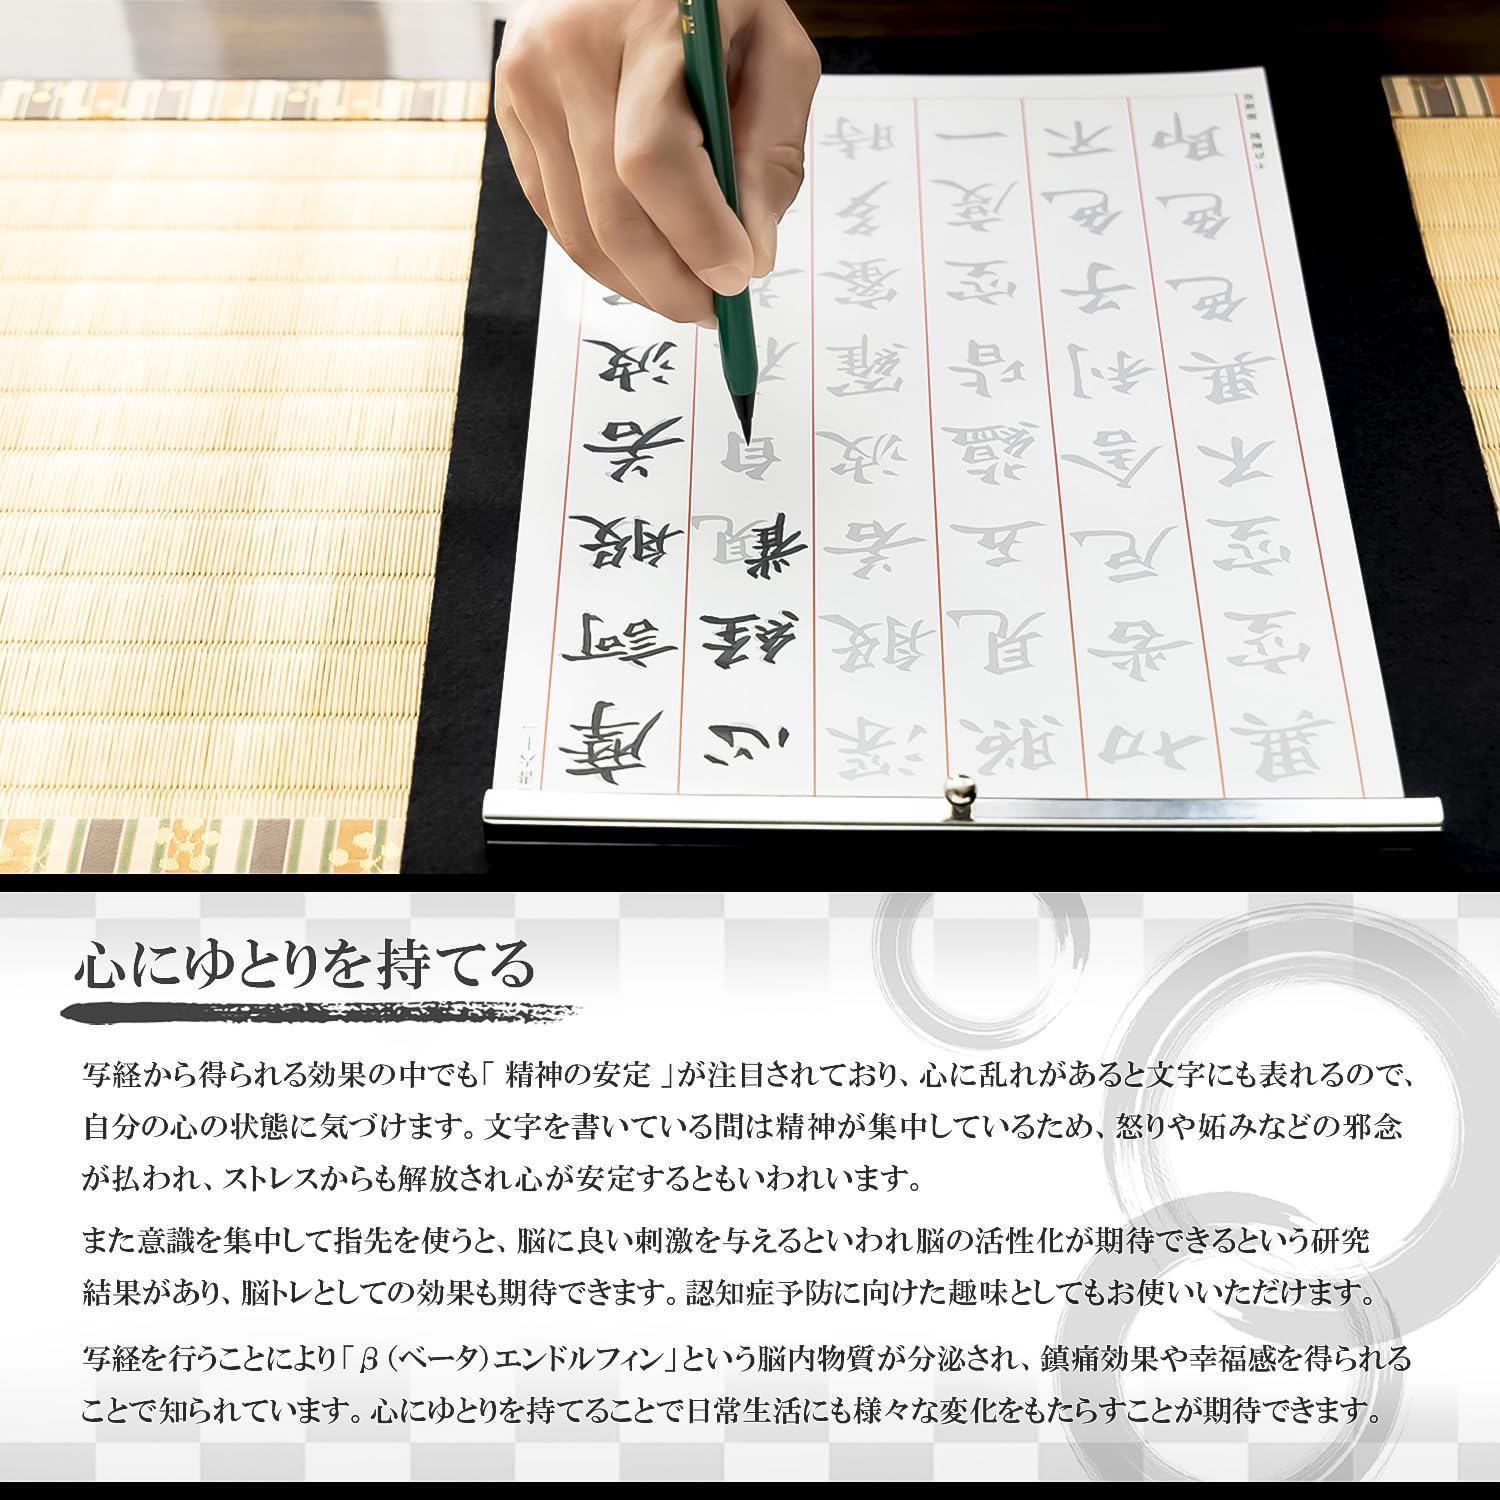 摩訶般若波
心経観自在
深般若波羅蜜多時
照見五蘊皆空度一
切苦厄舎利子色不
異空空不異色色即
心にゆとりを持てる
写経から得られる効果の中でも「 精神の安定 」が注目されており、心に乱れがあると文字にも表れるので、
自分の心の状態に気づけます。文字を書いている間は精神が集中しているため、怒りや妬みなどの邪念
が払われ、ストレスからも解放され心が安定するともいわれいます。
また意識を集中して指先を使うと、脳に良い刺激を与えるといわれ脳の活性化が期待できるという研究
結果があり、脳トレとしての効果も期待できます。認知症予防に向けた趣味としてもお使いいただけます。
写経を行うことにより「β（ベータ）エンドルフィン」という脳内物質が分泌され、鎮痛効果や幸福感を得られる
ことで知られています。心にゆとりを持てることで日常生活にも様々な変化をもたらすことが期待できます。